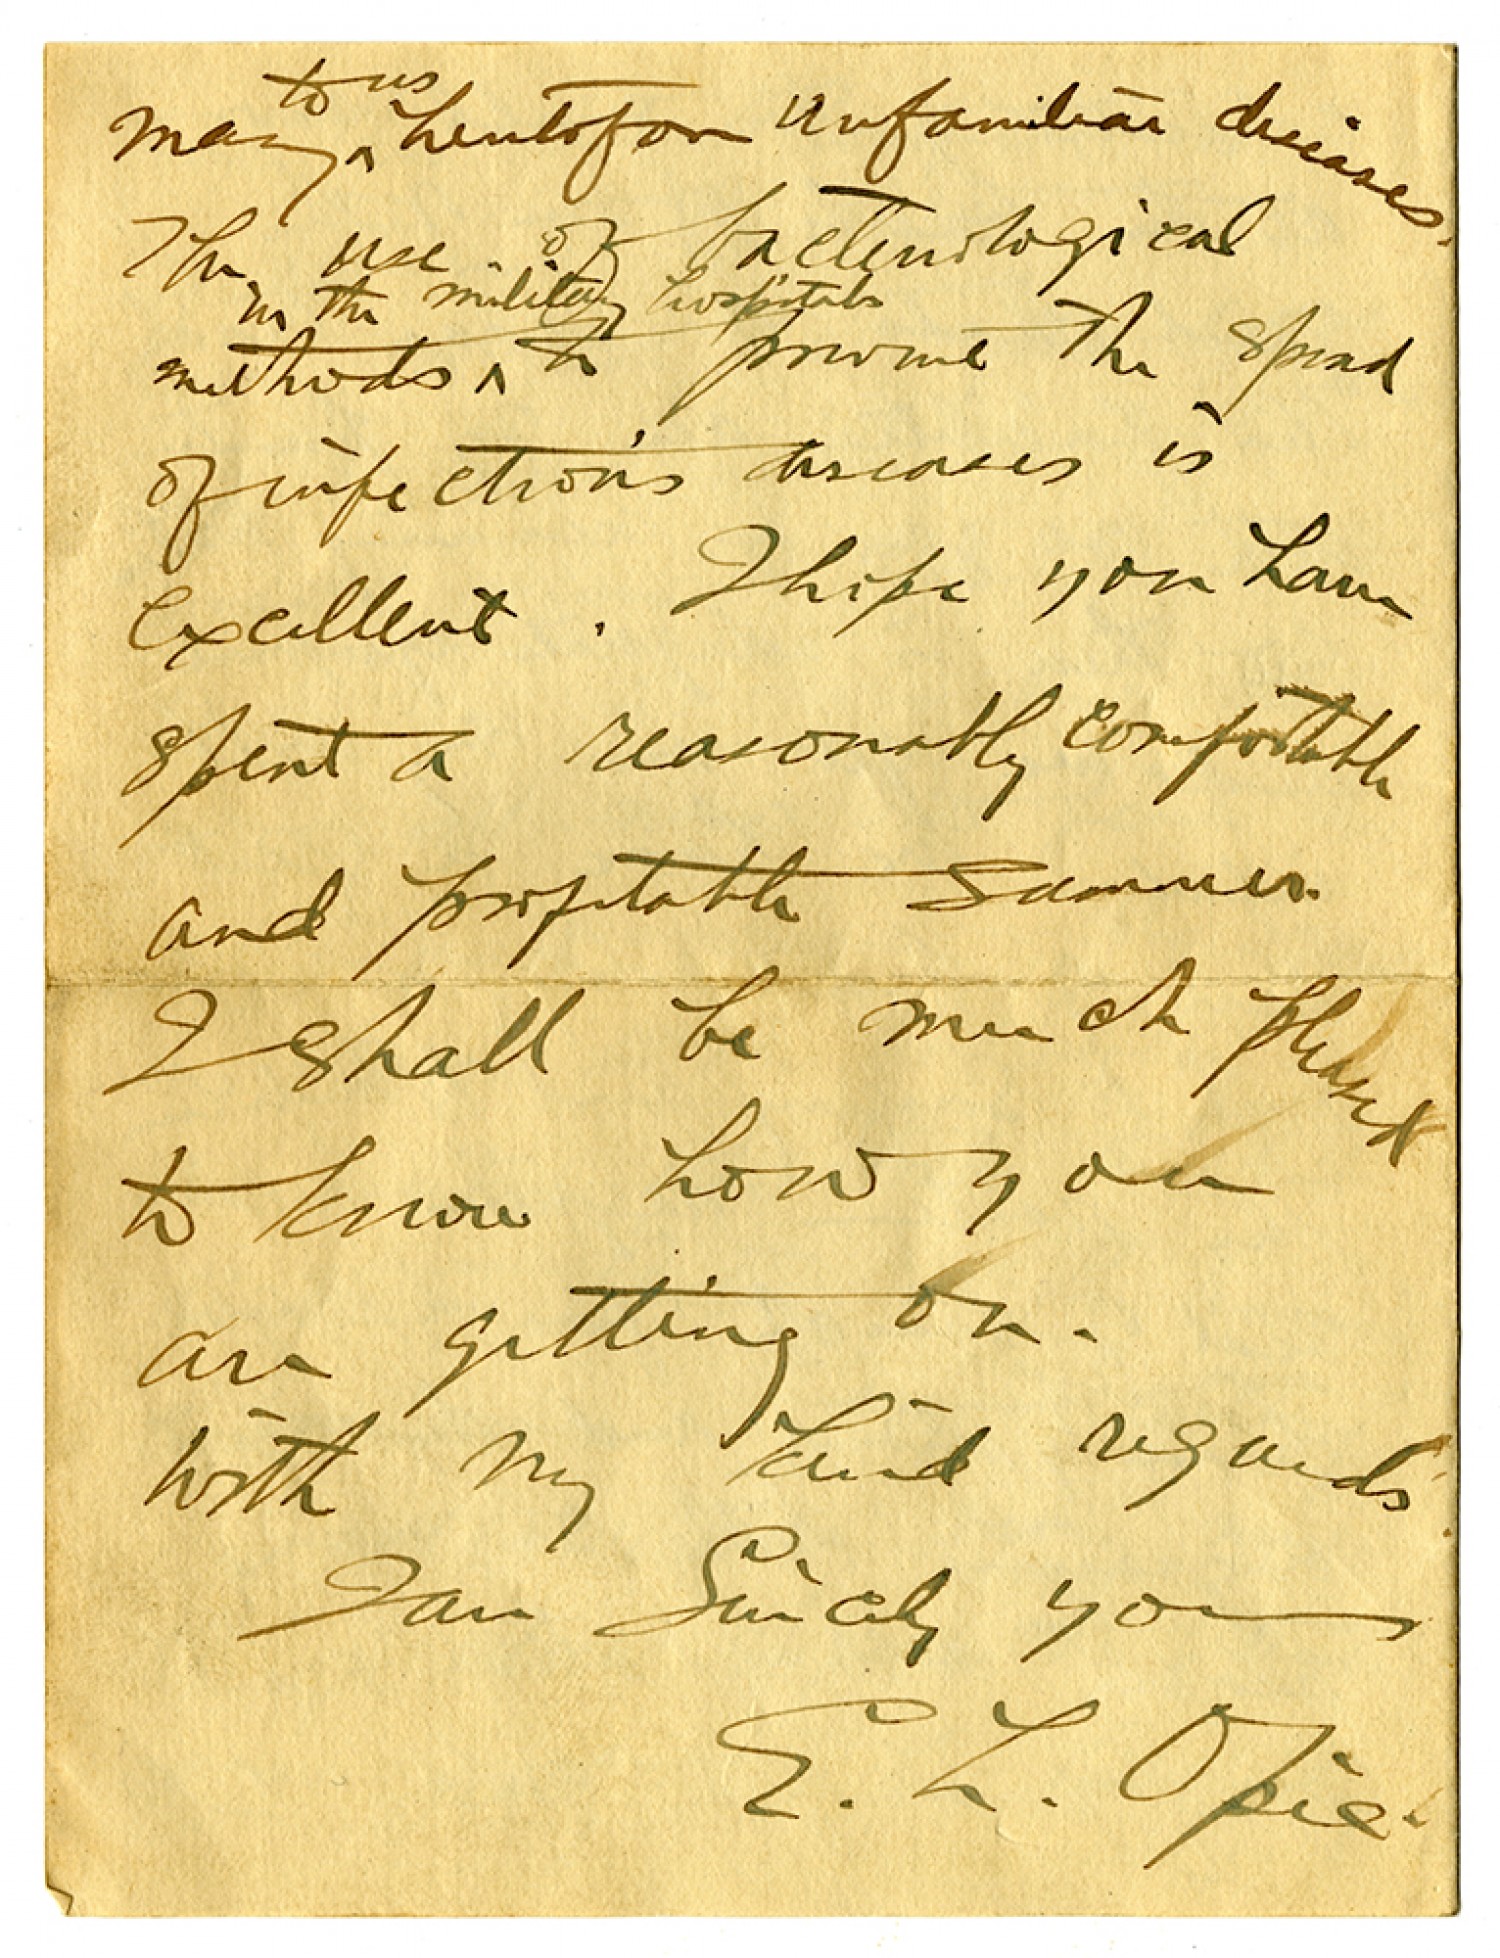 to us
many ^ heretofore unfamiliar diseases.
The use of bacteriological
in the military hospitals
methods ^ to prevent the spread
of infectious diseases is
excellent. I hope you have
spent a reasonably comfortable
and profitable summer.
I shall be much pleased
to know how you
are getting on.
With my kind regards
I am Sincerely yours
E. L. Opie.